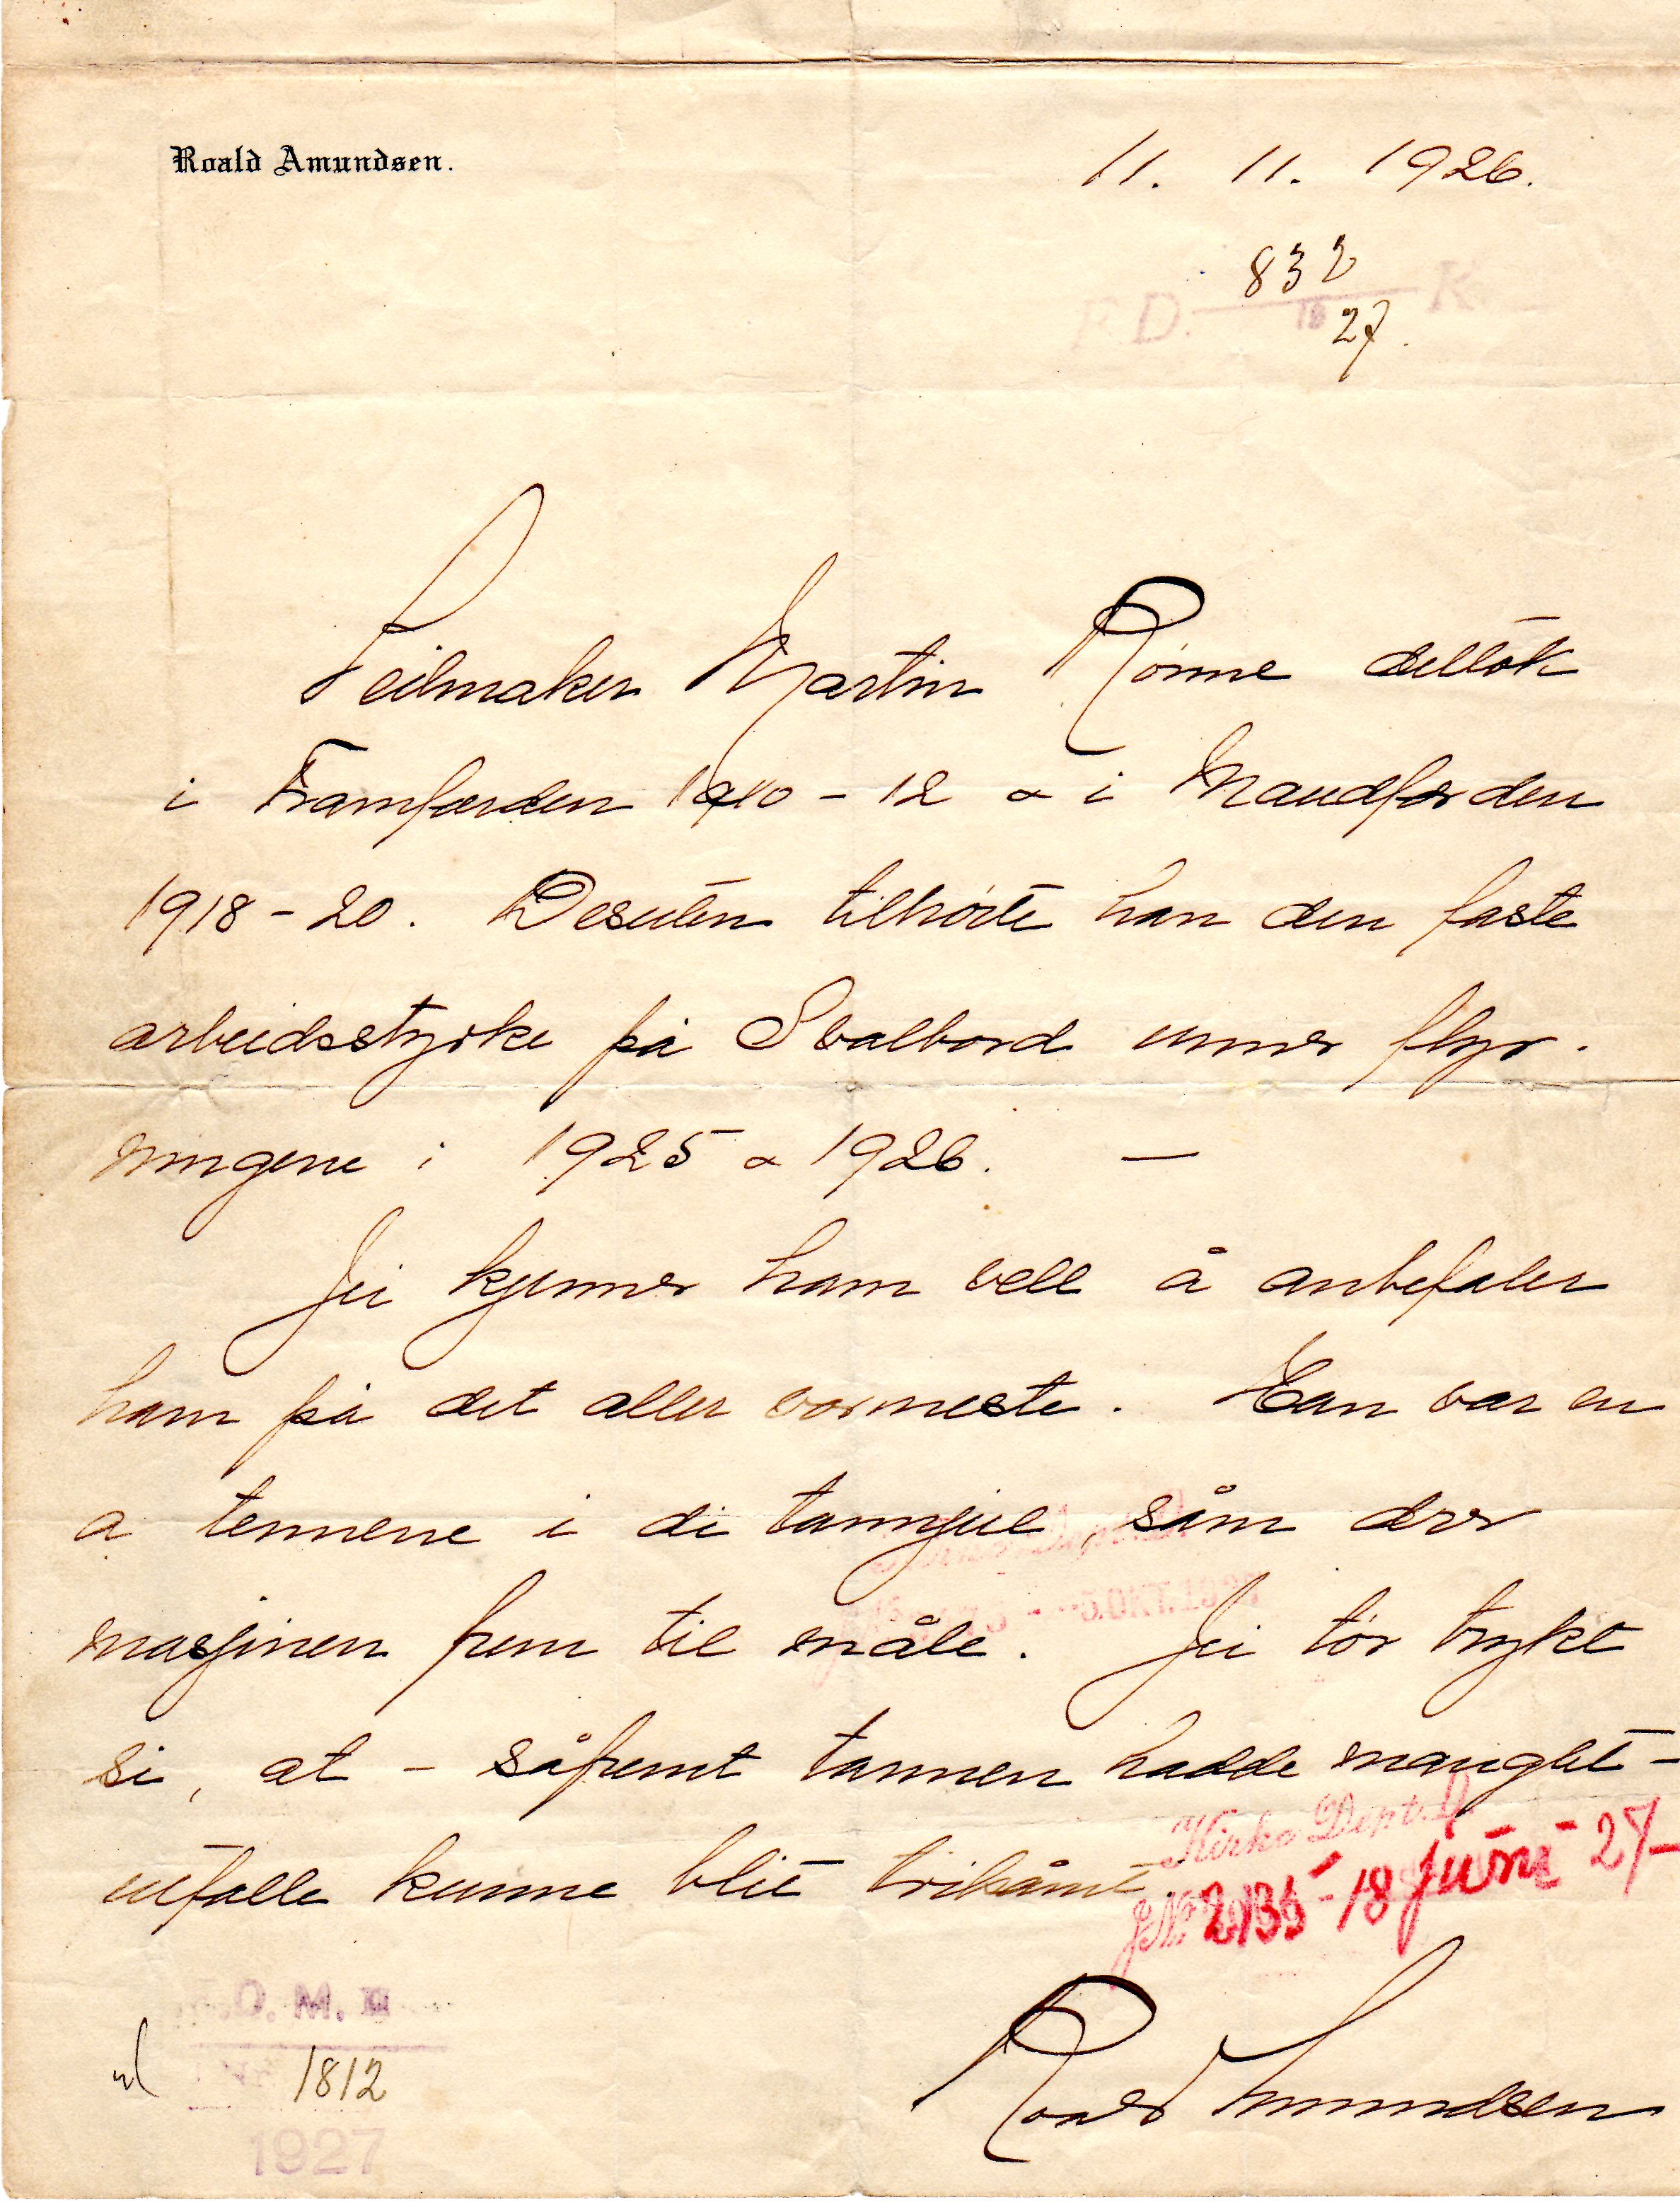 Roald Amundsen.
11. 11. 1926.
832
F.D. K.
19 27.
Seilmaker Martin Rönne deltok
i Framfærden 1910 - 12 & i Maudferden
1918 - 20. Desuten tilhörte han den faste
arbeidsstyrke på Svalbard unner flyv-
ningene i 1925 & 1926. —
Jei kjenner ham vell å anbefaler
ham på det aller varmeste. Han var en
a tennene i di tannjul, såm drev
masjinen frem til måle. Jei tör trykt
si, at - såfremt tannen hadde manglet -
utfalle kunne blit tvilsåmt.
5.OKT.19
Kirke Dept.
J.№ 2135 - 18 juni - 27 -
Roald Amundsen
.O. M.
1812
1927